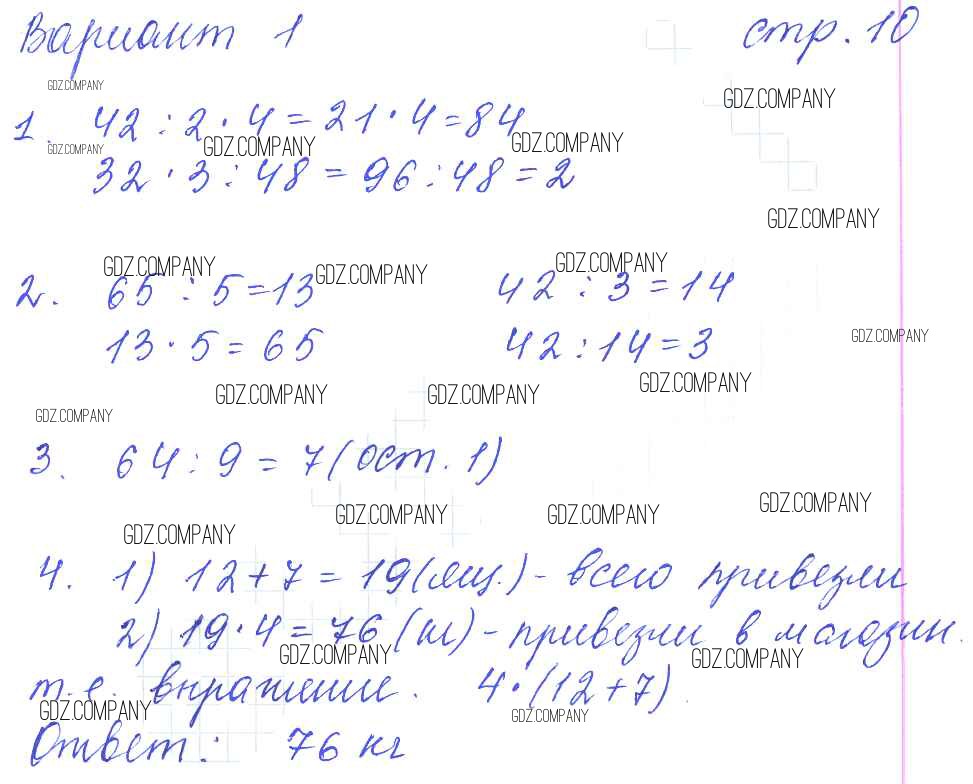 Вариант 1 стр. 10
GDZ.COMPANY
GDZ.COMPANY
1. 42 : 2 · 4 = 21 · 4 = 84
GDZ.COMPANY GDZ.COMPANY GDZ.COMPANY
32 · 3 : 48 = 96 : 48 = 2
GDZ.COMPANY
GDZ.COMPANY GDZ.COMPANY GDZ.COMPANY
2. 65 : 5 = 13 42 : 3 = 14
13 · 5 = 65 42 : 14 = 3
GDZ.COMPANY
GDZ.COMPANY GDZ.COMPANY GDZ.COMPANY
GDZ.COMPANY
3. 64 : 9 = 7 (ост. 1)
GDZ.COMPANY GDZ.COMPANY GDZ.COMPANY
GDZ.COMPANY
4. 1) 12 + 7 = 19 (ящ.) - всего привезли
2) 19 · 4 = 76 (кг) - привезли в магазин.
GDZ.COMPANY GDZ.COMPANY
т.е. выражение. 4 · (12 + 7).
GDZ.COMPANY GDZ.COMPANY
Ответ: 76 кг